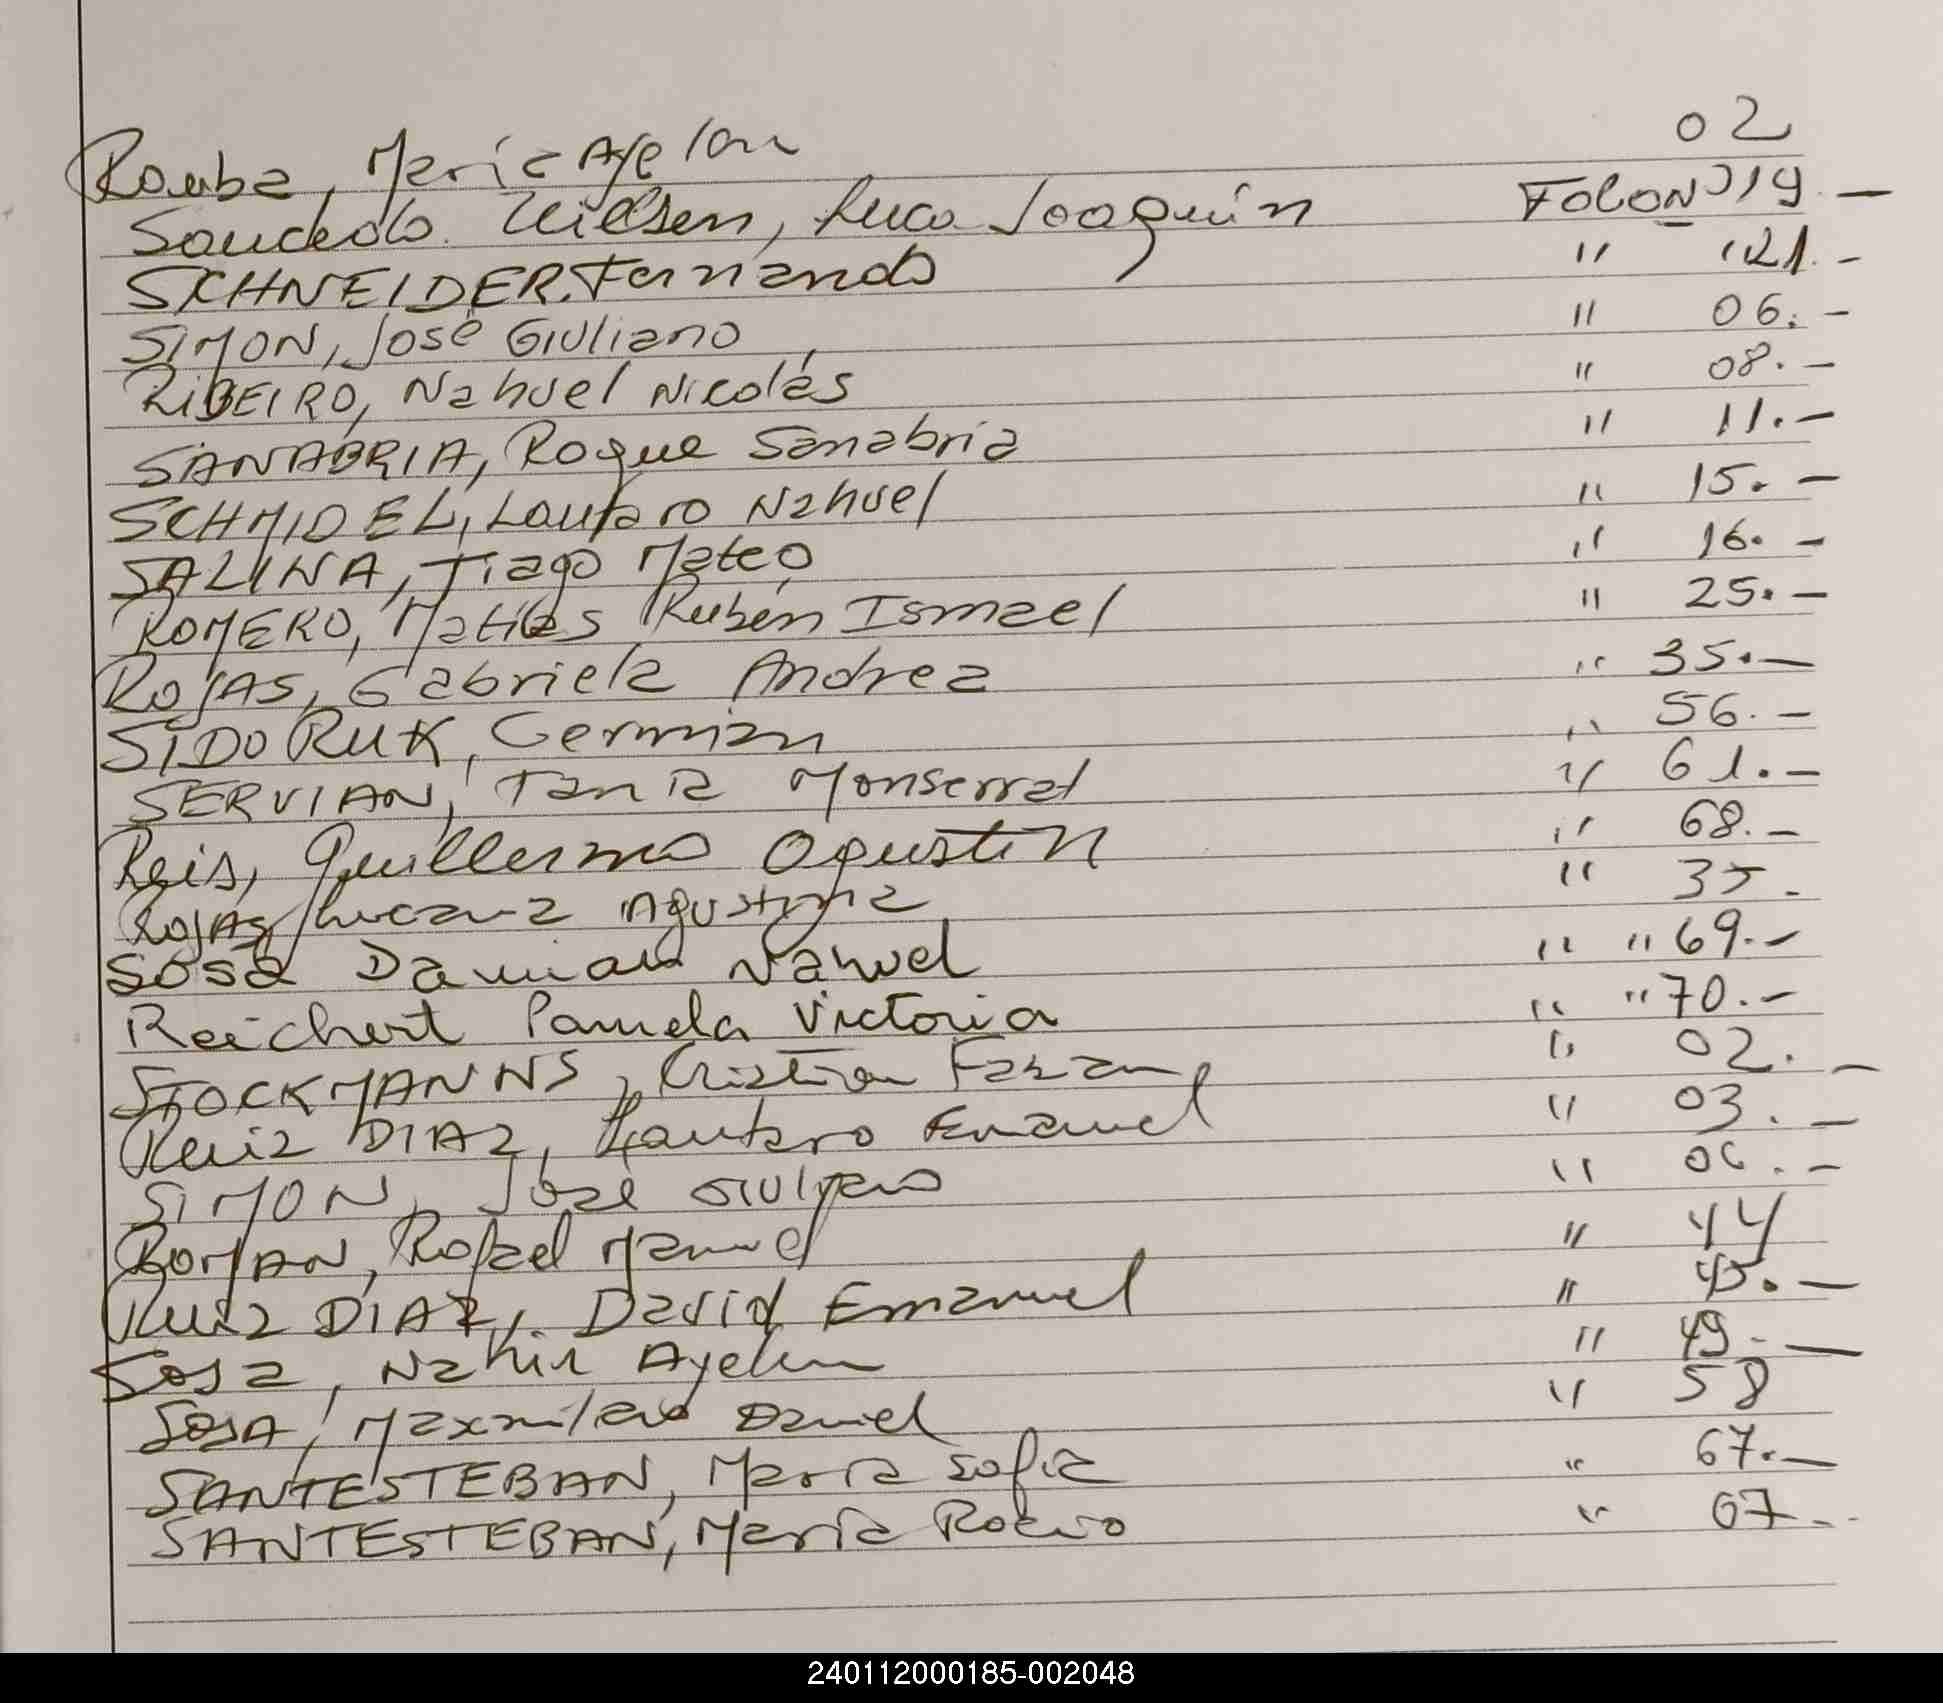 Romba, Maria Ayelen 02
Saucedo Nielsen, Luca Joaquín FOLON 019.—
SCHNEIDER, Fernando " 121.-
SIMON, José GIULIANO " 06.-
RIBEIRO, Nahuel Nicolás " 08.-
SANABRIA, Roque Sanabria " 11.-
SCHMIDEL, Lautaro Nahuel " 15.-
SALINA, Tiago Mateo " 16.-
ROMERO, Matias Rubén Ismael " 25.-
ROJAS, Gabriela Andrea " 35.—
SIDORUK, German " 56.-
SERVIAN, Tania Monserrat " 61.-
Reis, Guillermo Agustin " 68.-
ROJAS, Luciana Agustina " 35.
Sosa Damian Nahuel " " 69.-
Reichert Pamela Victoria " " 70.-
STOCKMANNS, Cristian Fabian " 02.-
Ruiz DIAZ, Lautaro Emanuel " 03.-
SIMON, José Giuliano " 06.-
ROMAN, Rafael Manuel " 44
Ruiz DIAZ, David Emanuel " 45.—
Sosa, Nahir Ayelen " 49.—
SOSA, Maxmiliano Daniel " 58
SANTESTEBAN, Maria Sofia " 67.—
SANTESTEBAN, María Rocio " 67.-
240112000185-002048